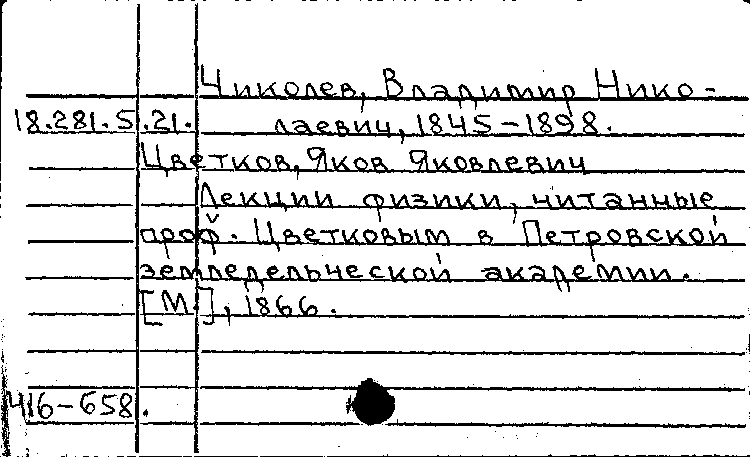 Чиколев, Владимир Нико-
18.281.5.21. лаевич, 1845-1898.
Цветков, Яков Яковлевич
Лекции физики, читанные
проф. Цветковым в Петровской
земледельческой академии.
[М.], 1866.
416-658.